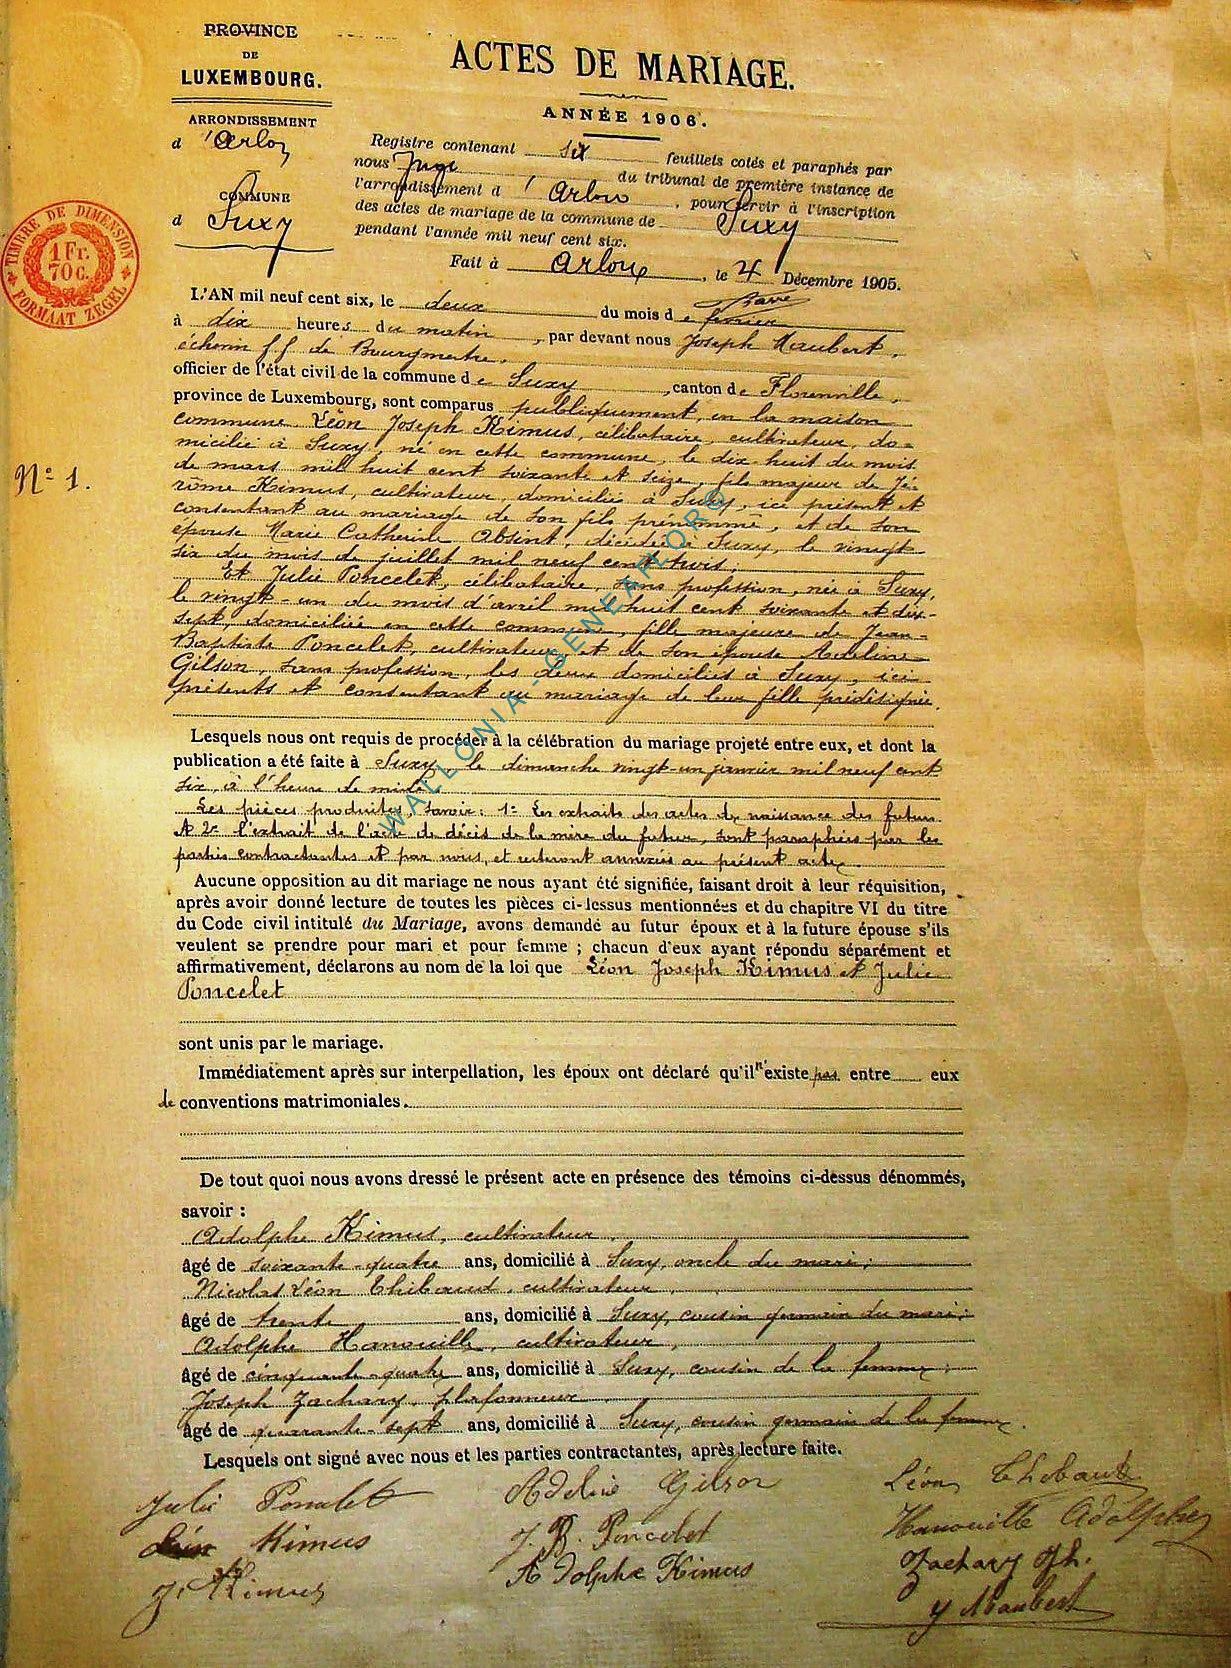 PROVINCE
DE
LUXEMBOURG.
ARRONDISSEMENT
d'Arlon
COMMUNE
d Suxy
TIMBRE DE DIMENSION
1 Fr.
70 c.
FORMAAT ZEGEL
ACTES DE MARIAGE.
ANNÉE 1906.
Registre contenant six feuillets cotés et paraphés par
nous Juge du tribunal de première instance de
l'arrondissement d'Arlon, pour servir à l'inscription
des actes de mariage de la commune de Suxy
pendant l'année mil neuf cent six.
Fait à Arlon, le 4 Décembre 1905.
L'AN mil neuf cent six, le deux du mois de février
à dix heures du matin, par devant nous Joseph Maubert,
échevin f.f. de Bourgmestre,
officier de l'état civil de la commune de Suxy, canton de Florenville,
province de Luxembourg, sont comparus publiquement, en la maison
commune Léon Joseph Kimus, célibataire, cultivateur, do-
micilié à Suxy, né en cette commune, le dix-huit du mois
de mars mil huit cent soixante et seize, fils majeur de Jé-
rôme Kimus, cultivateur, domicilié à Suxy, ici présent et
consentant au mariage de son fils prénommé, et de son
épouse Marie Catherine Absint, décédée à Suxy, le vingt-
six du mois de juillet mil neuf cent trois;
Et Julie Poncelet, célibataire, sans profession, née à Suxy,
le vingt-un du mois d'avril mil huit cent soixante et dix-
sept, domiciliée en cette commune, fille majeure de Jean-
Baptiste Poncelet, cultivateur, et de son épouse Adeline
Gilson, sans profession, les deux domiciliés à Suxy, ici
présents et consentant au mariage de leur fille prédésignée.
N° 1.
Lesquels nous ont requis de procéder à la célébration du mariage projeté entre eux, et dont la
publication a été faite à Suxy, le dimanche vingt-un janvier mil neuf cent
six, à l'heure de midi
Les pièces produites, savoir: 1° Les extraits des actes de naissance des futurs
et 2° l'extrait de l'acte de décès de la mère du futur, sont paraphées par les
parties contractantes et par nous, et resteront annexées au présent acte.
Aucune opposition au dit mariage ne nous ayant été signifiée, faisant droit à leur réquisition,
après avoir donné lecture de toutes les pièces ci-dessus mentionnées et du chapitre VI du titre
du Code civil intitulé du Mariage, avons demandé au futur époux et à la future épouse s'ils
veulent se prendre pour mari et pour femme ; chacun d'eux ayant répondu séparément et
affirmativement, déclarons au nom de la loi que Léon Joseph Kimus et Julie
Poncelet
sont unis par le mariage.
Immédiatement après sur interpellation, les époux ont déclaré qu'il n'existe pas entre eux
de conventions matrimoniales.
De tout quoi nous avons dressé le présent acte en présence des témoins ci-dessus dénommés,
savoir :
Adolphe Kimus, cultivateur,
âgé de soixante-quatre ans, domicilié à Suxy, oncle du mari;
Nicolas Léon Thibaud, cultivateur,
âgé de trente ans, domicilié à Suxy, cousin germain du mari;
Adolphe Hanouille, cultivateur,
âgé de cinquante-quatre ans, domicilié à Suxy, cousin de la femme;
Joseph Zachary, plafonneur
âgé de quarante-sept ans, domicilié à Suxy, cousin germain de la femme.
Lesquels ont signé avec nous et les parties contractantes, après lecture faite.
Julie Poncelet Adeline Gilson Léon Thibaud
Léon Kimus J. B. Poncelet Hanouille Adolphe
J. Kimus Adolphe Kimus Zachary Jh.
J Maubert
WALLONIA - GENEAFLOR©